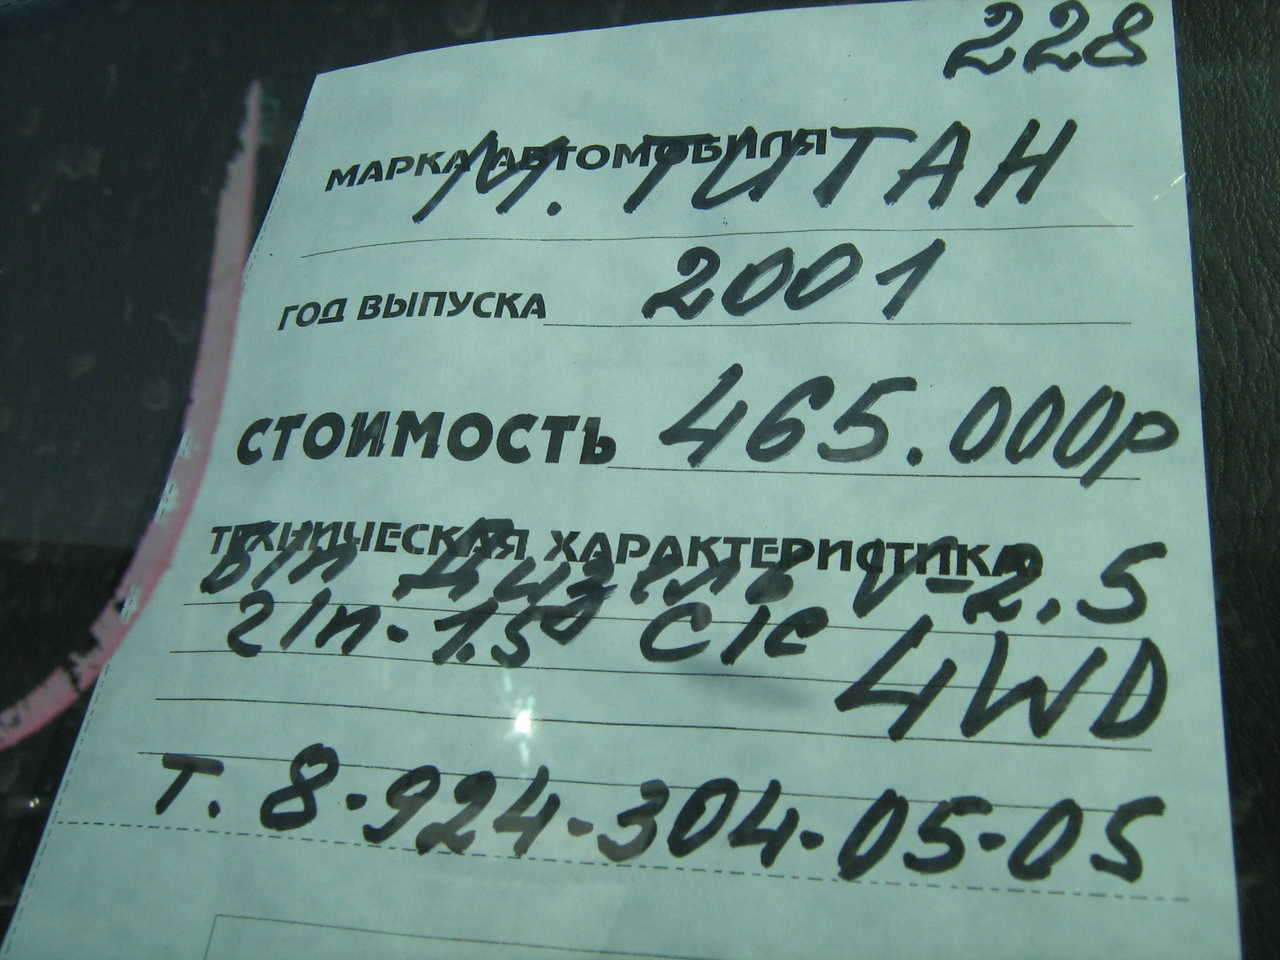 228
МАРКА АВТОМОБИЛЯ М. ТИТАН
ГОД ВЫПУСКА 2001
СТОИМОСТЬ 465.000р
ТЕХНИЧЕСКАЯ ХАРАКТЕРИСТИКА
б/п Дизель V-2.5
г/п-1.5 с/с 4WD
т. 8-924-304-05-05